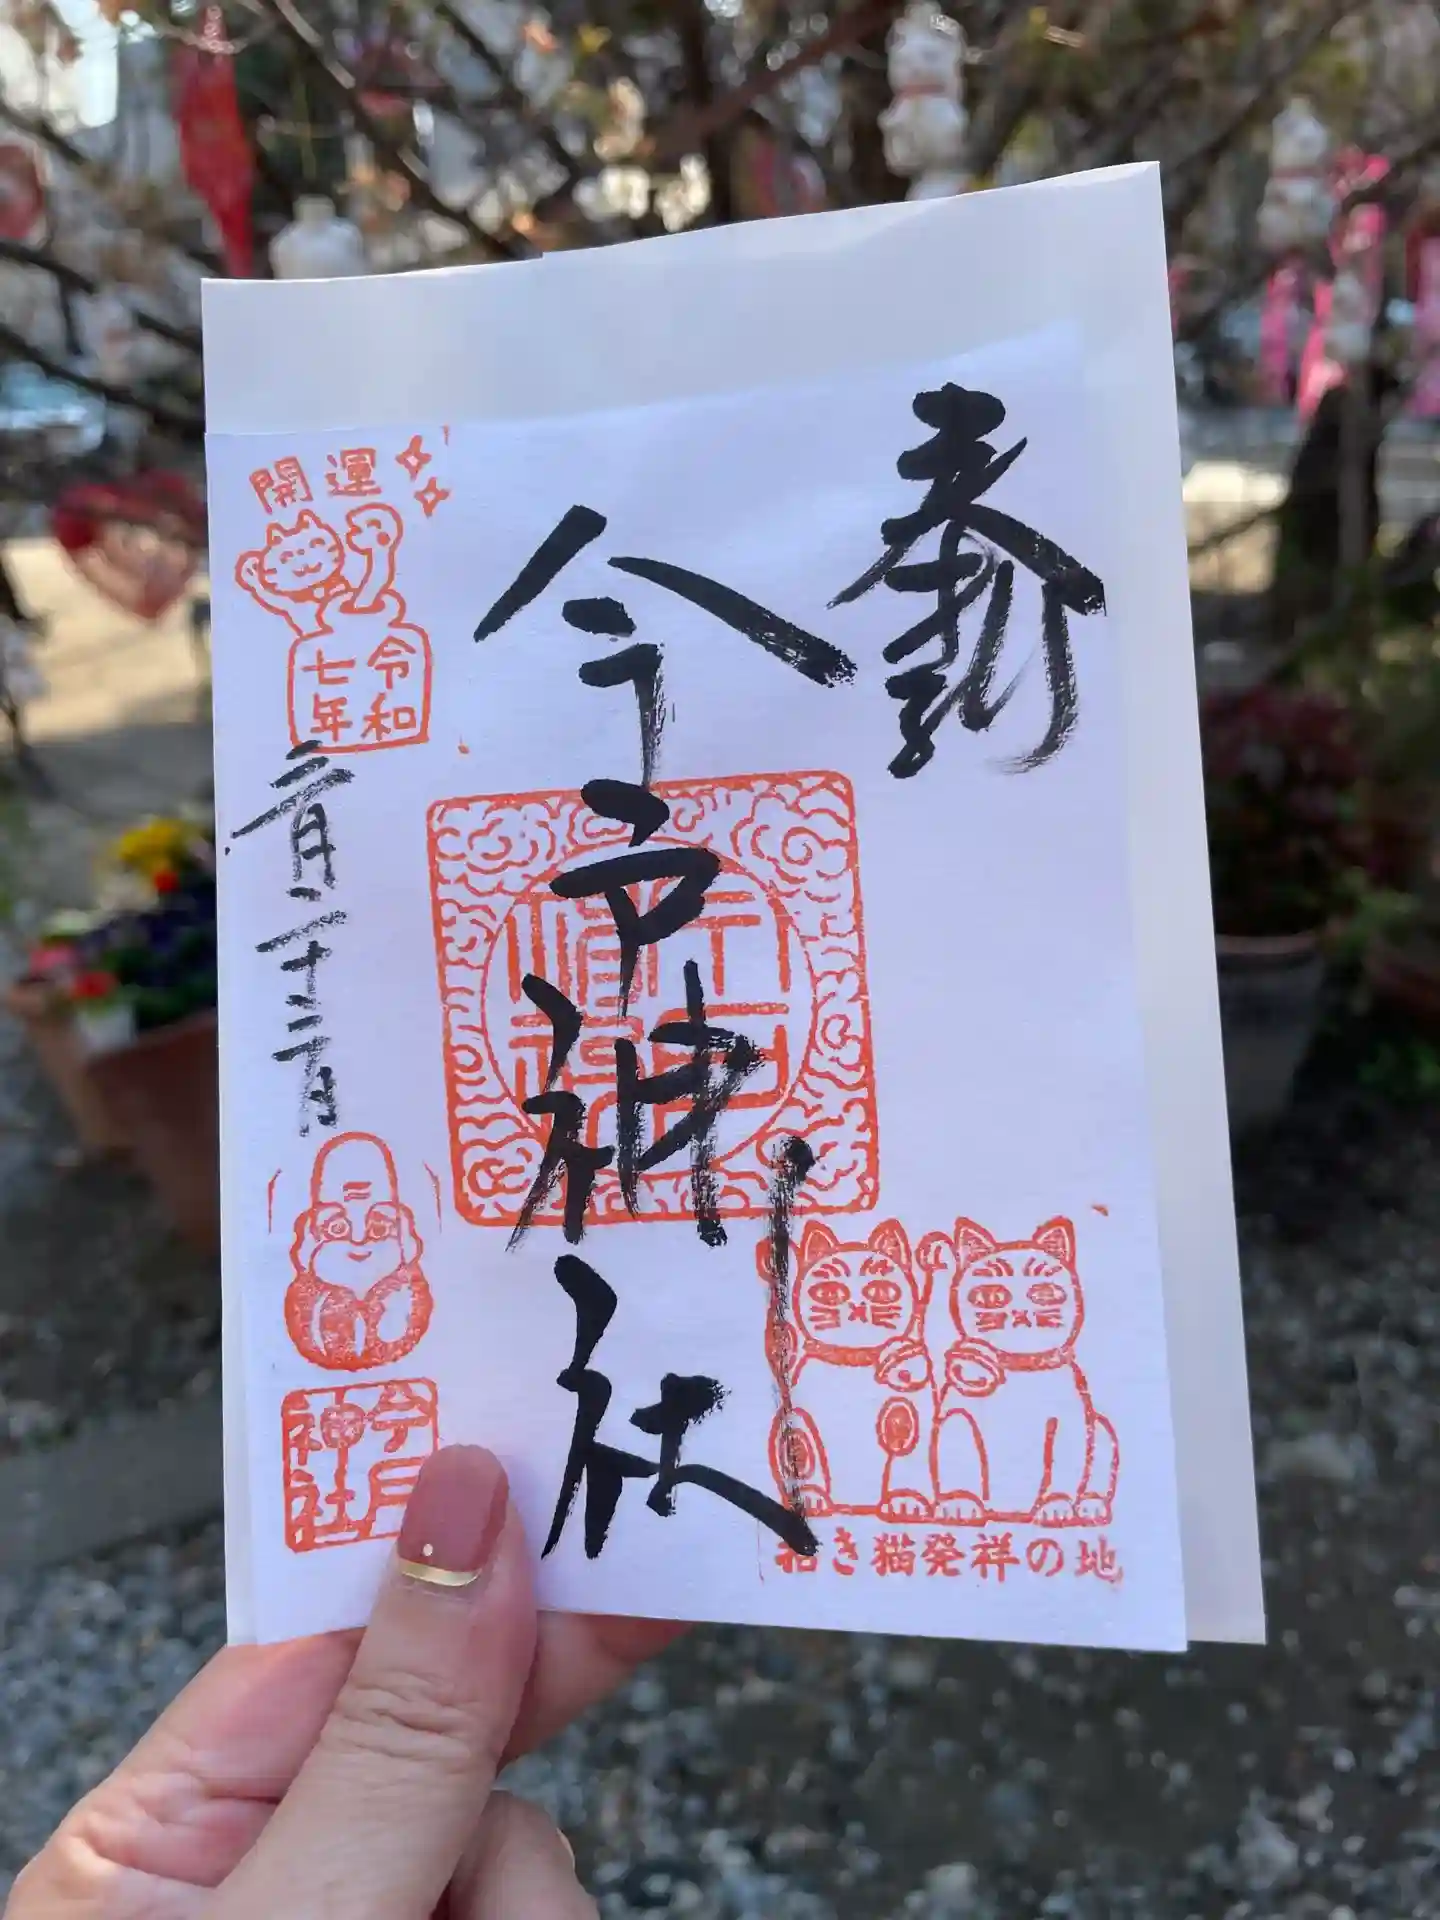 奉拝
今戸神社
招き猫発祥の地
開運
令和
七年
二月二十二日
今戸
神社